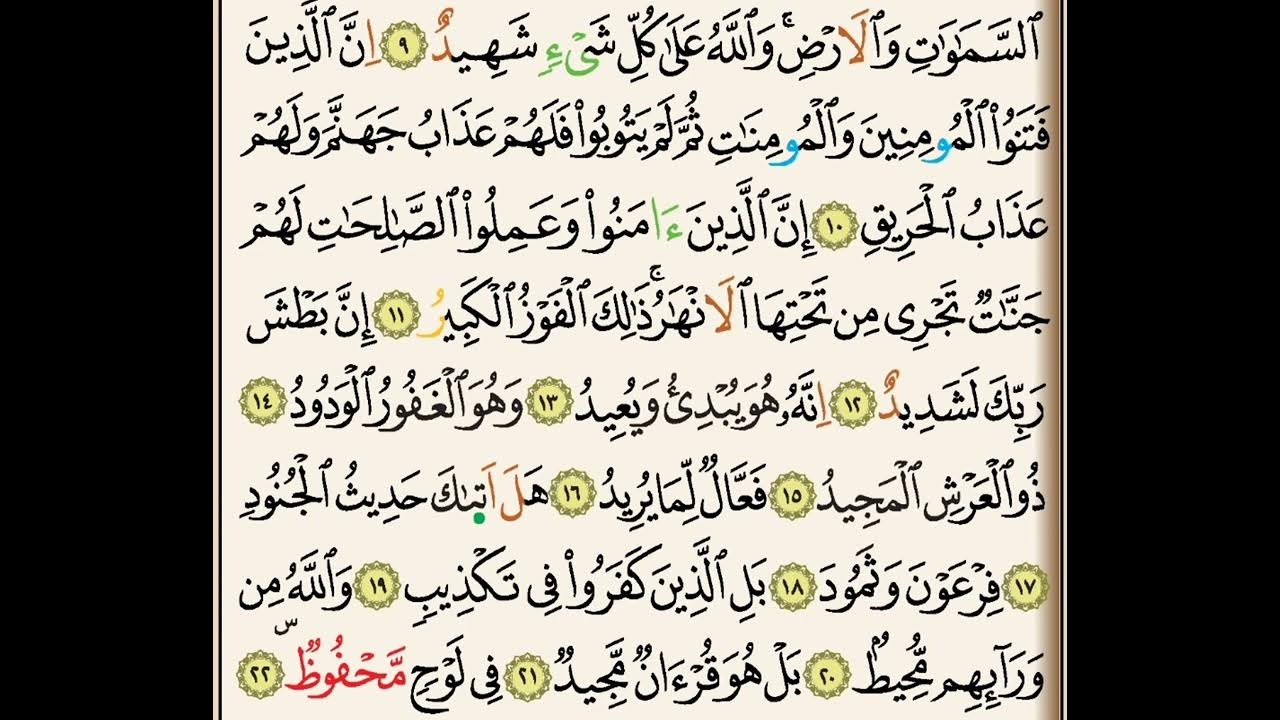 ٱلسَّمَٰوَٰتِ وَٱلَارۡضِۚ وَٱللَّهُ عَلَىٰ كُلِّ شَيۡءٖ شَهِيدٌ ٩ اِنَّ ٱلَّذِينَ
فَتَنُواْ ٱلۡمُومِنِينَ وَٱلۡمُومِنَٰتِ ثُمَّ لَمۡ يَتُوبُواْ فَلَهُمۡ عَذَابُ جَهَنَّمَ وَلَهُمۡ
عَذَابُ ٱلۡحَرِيقِ ١٠ إِنَّ ٱلَّذِينَ ءَامَنُواْ وَعَمِلُواْ ٱلصَّٰلِحَٰتِ لَهُمۡ
جَنَّٰتٞ تَجۡرِي مِن تَحۡتِهَا ٱلَانۡهَٰرُۚ ذَٰلِكَ ٱلۡفَوۡزُ ٱلۡكَبِيرُ ١١ إِنَّ بَطۡشَ
رَبِّكَ لَشَدِيدٌ ١٢ اِنَّهُۥ هُوَ يُبۡدِئُ وَيُعِيدُ ١٣ وَهُوَ ٱلۡغَفُورُ ٱلۡوَدُودُ ١٤
ذُو ٱلۡعَرۡشِ ٱلۡمَجِيدُ ١٥ فَعَّالٞ لِّمَا يُرِيدُ ١٦ هَلَ اَتىٰكَ حَدِيثُ ٱلۡجُنُودِ
١٧ فِرۡعَوۡنَ وَثَمُودَ ١٨ بَلِ ٱلَّذِينَ كَفَرُواْ فِي تَكۡذِيبٖ ١٩ وَٱللَّهُ مِن
وَرَآئِهِم مُّحِيطُۢ ٢٠ بَلۡ هُوَ قُرۡءَانٞ مَّجِيدٞ ٢١ فِي لَوۡحٖ مَّحۡفُوظٞ ٢٢